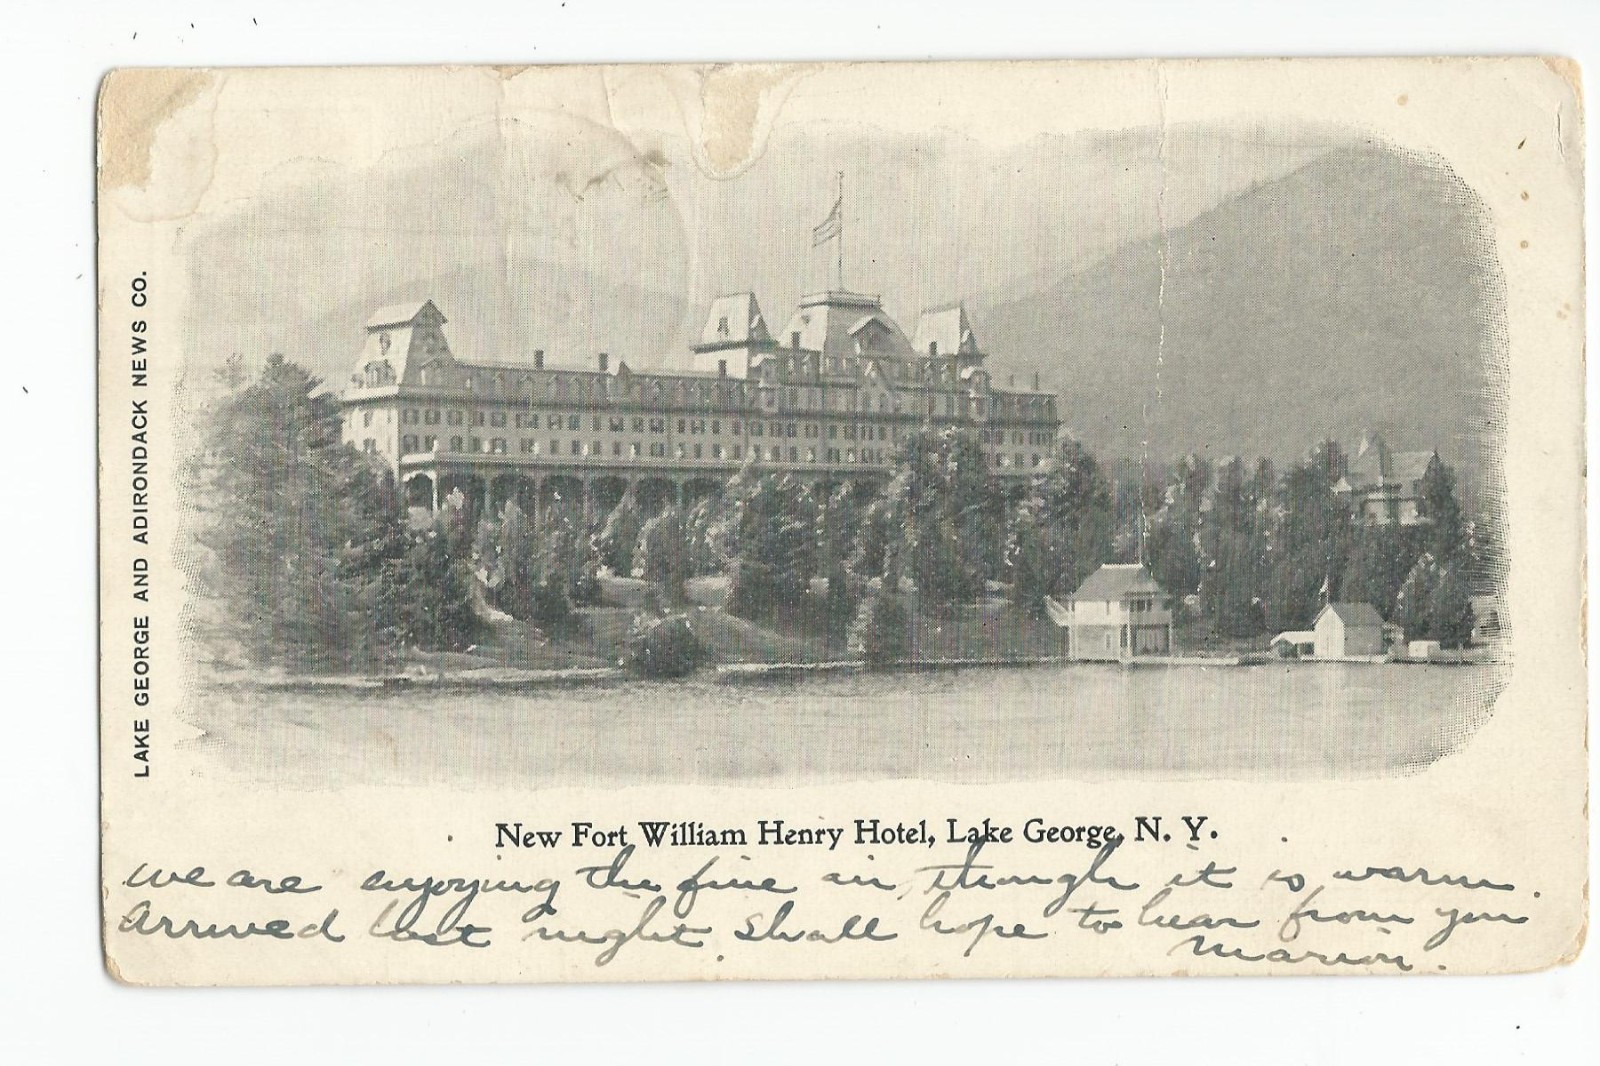 LAKE GEORGE AND ADIRONDACK NEWS CO.
New Fort William Henry Hotel, Lake George, N. Y.
we are enjoying the fine air, though it is warm.
Arrived last night. Shall hope to hear from you
Marion.